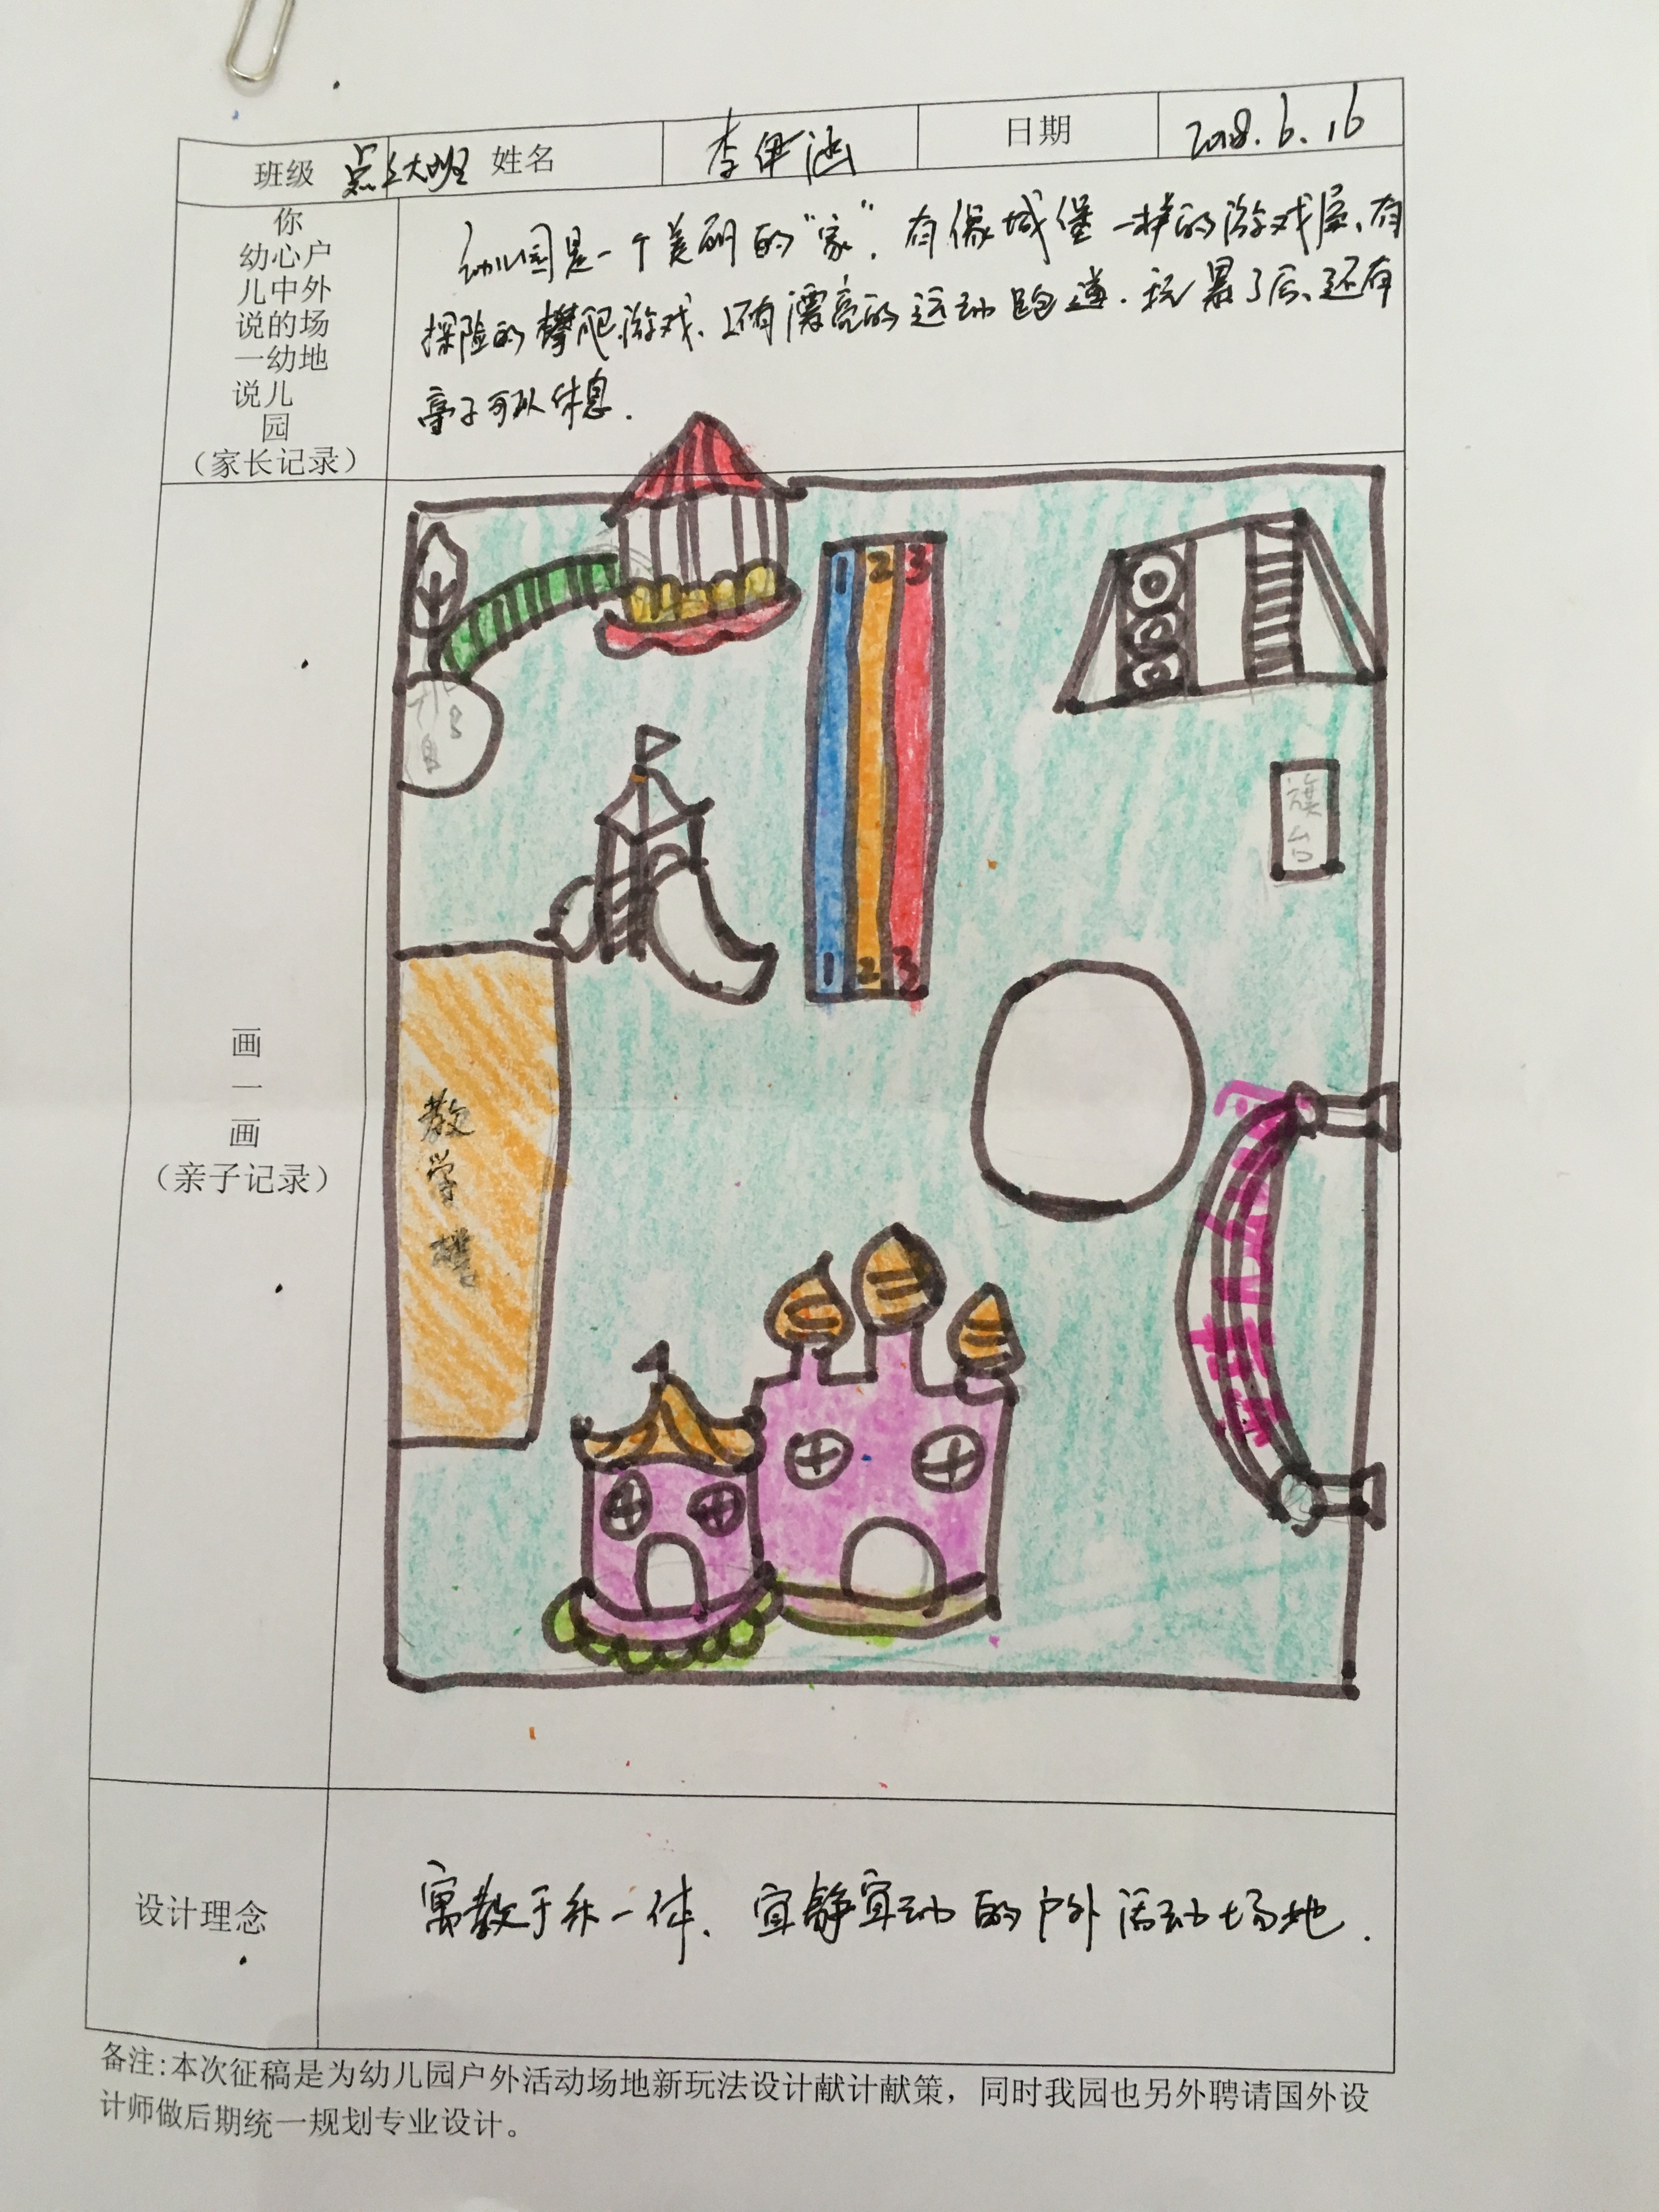 班级 点点大班 姓名 李伊涵 日期 2018.6.16
你
幼心户
儿中外
说的场
一幼地
说儿
园
（家长记录）
幼儿园是一个美丽的“家”. 有像城堡一样的游戏屋、有
探险的攀爬游戏、还有漂亮的运动跑道. 玩累了后、还有
亭子可以休息.
1 2 3
旗台
1 2 3
教
学
楼
画
一
画
（亲子记录）
设计理念
寓教于乐一体、宜静宜动的户外活动场地.
备注:本次征稿是为幼儿园户外活动场地新玩法设计献计献策，同时我园也另外聘请国外设
计师做后期统一规划专业设计。